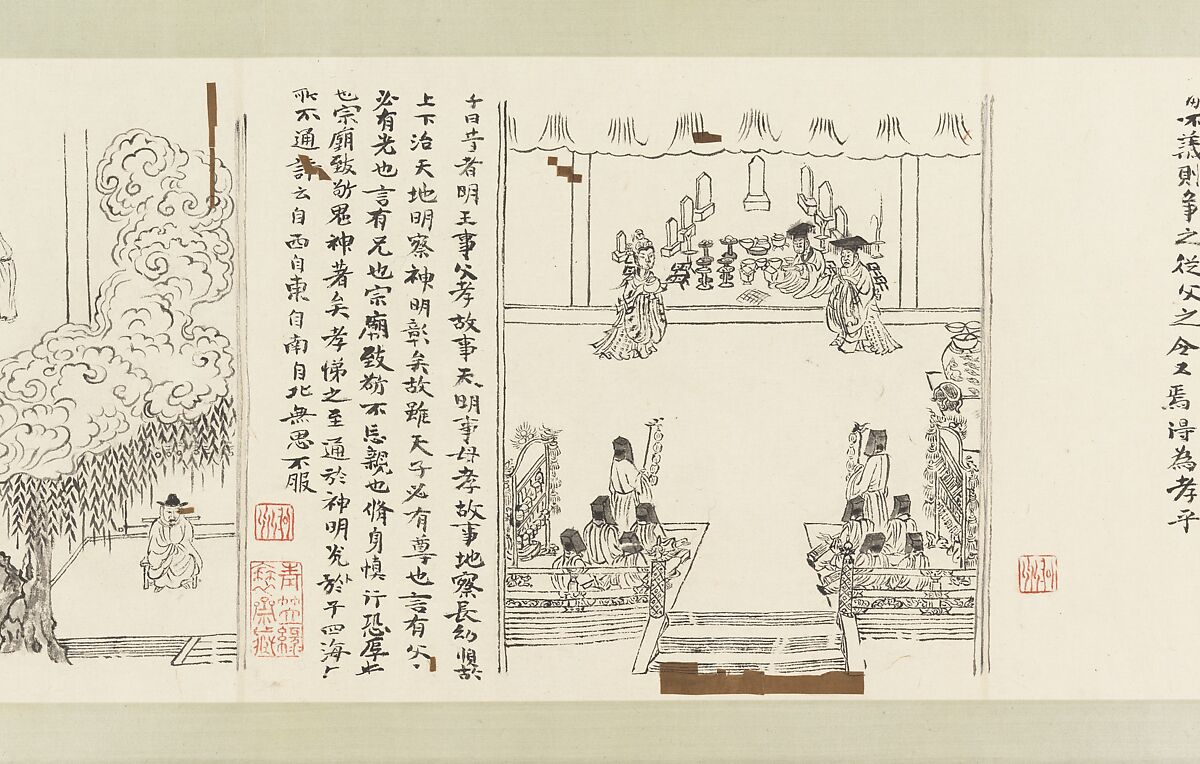 不義則爭之從父之令又焉得為孝乎
子曰昔者明王事父孝故事天明事母孝故事地察長幼順故
上下治天地明察神明彰矣故雖天子必有尊也言有父
必有先也言有兄也宗廟致敬不忘親也脩身慎行恐辱
也宗廟致敬鬼神著矣孝悌之至通於神明光於于四海
所不通詩云自西自東自南自北無思不服